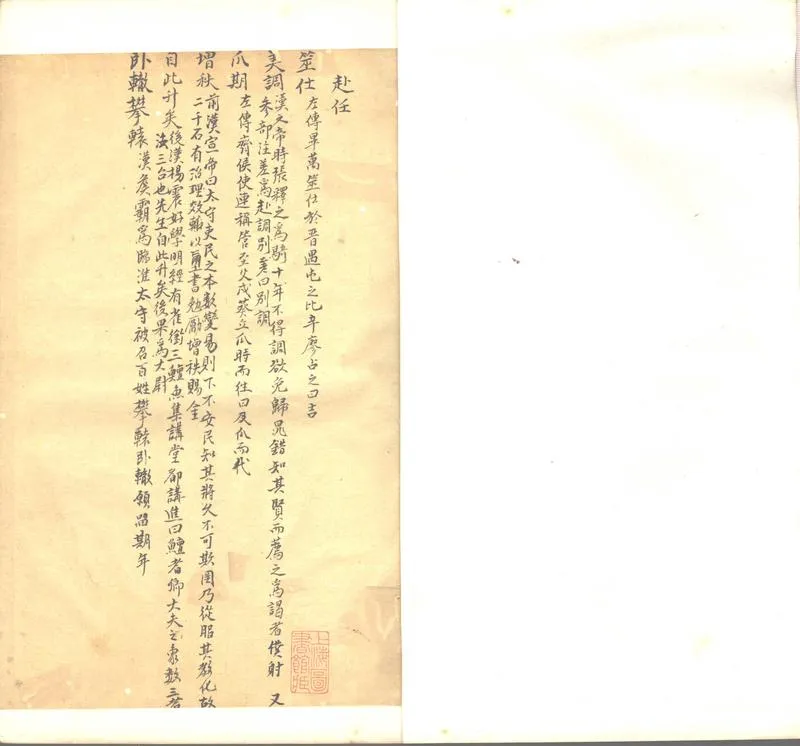 赴任
筮仕 左傳畢萬筮仕於晋遇屯之比辛廖占之曰吉
美調 漢文帝時張釋之為騎十年不得調欲免歸晁錯知其賢而薦之為謁者僕射 又
朱部注差為赴調別差曰別調
爪期 左傳齊侯使連稱管至父戍葵丘爪時而往曰及爪而代
增秩 前漢宣帝曰太守吏民之本數變易則下不安民知其將久不可欺罔乃從服其敎化故
二千石有治理效輒以璽書勉勵增秩賜金
自此升矣 後漢楊震好學明經有雀銜三鱣魚集講堂都講進曰鱣者卿大夫之象數三者
法三台也先生自此升矣後果為大尉
卧轍攀轅 漢侯霸為臨淮太守被召百姓攀轅卧轍願留期年
上海圖書館藏